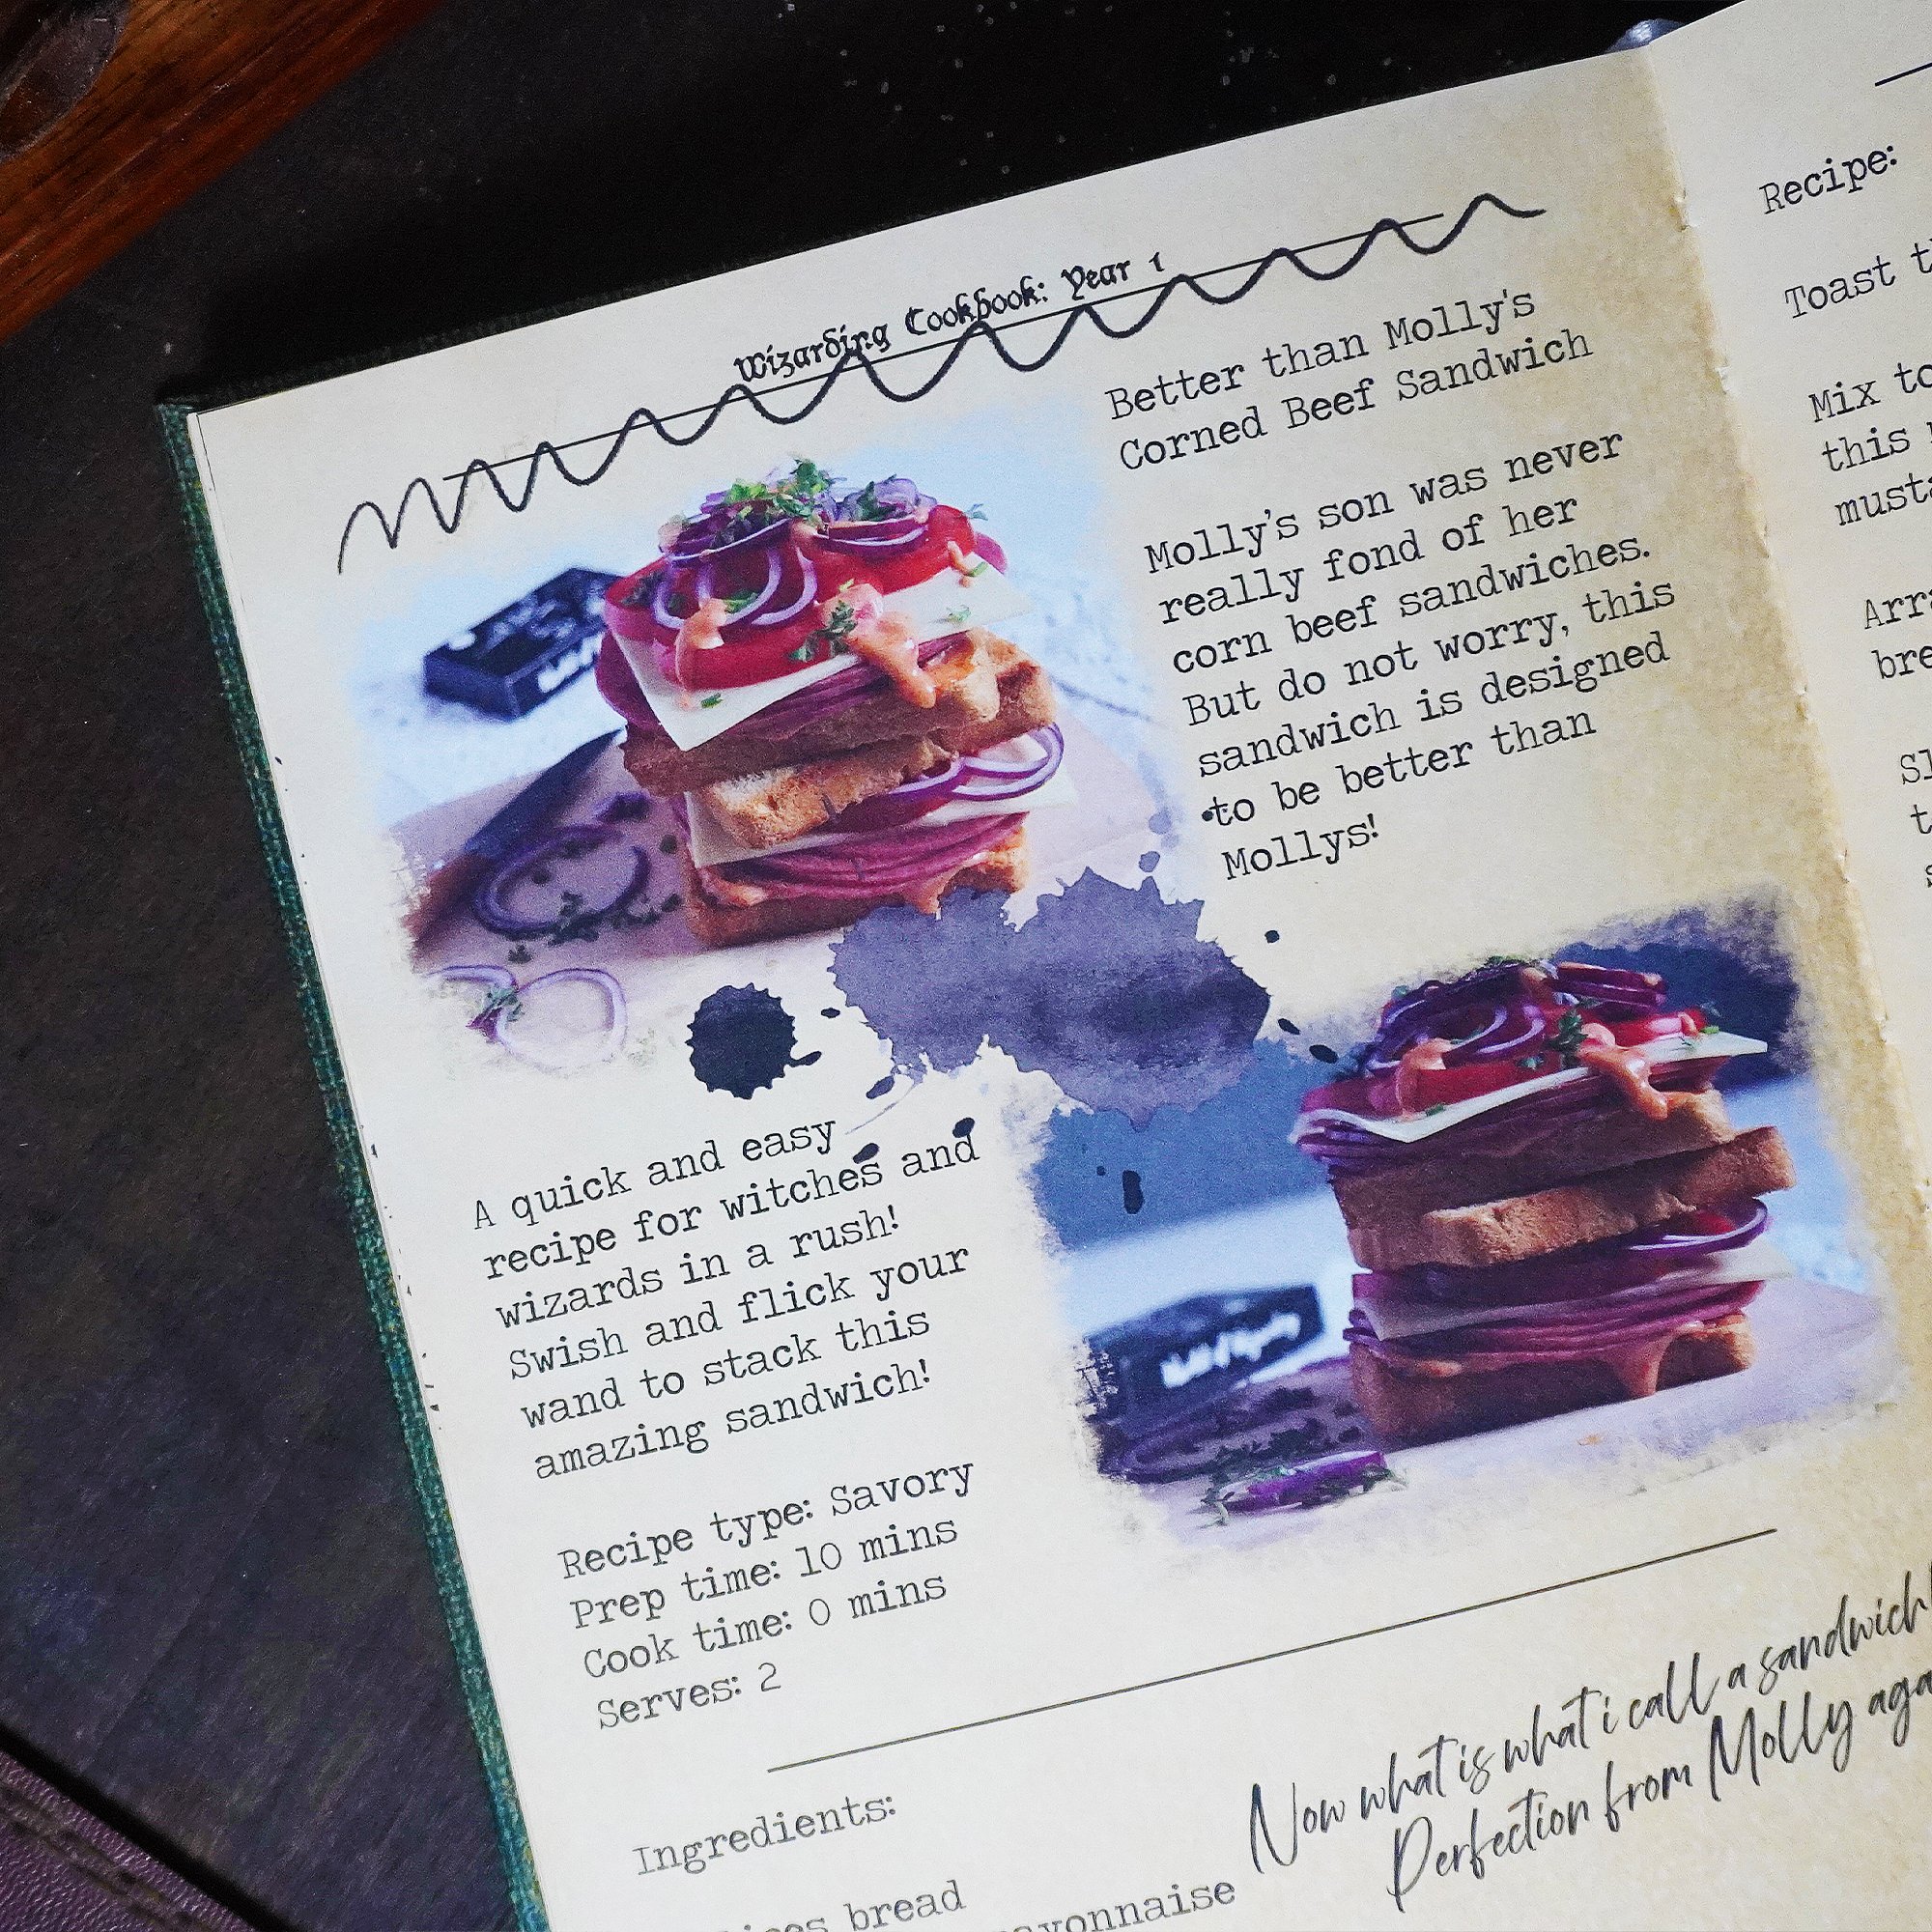 Wizarding Cookbook: Year 1
Better than Molly's
Corned Beef Sandwich
Molly's son was never
really fond of her
corn beef sandwiches.
But do not worry, this
sandwich is designed
to be better than
Mollys!
A quick and easy
recipe for witches and
wizards in a rush!
Swish and flick your
wand to stack this
amazing sandwich!
Recipe type: Savory
Prep time: 10 mins
Cook time: 0 mins
Serves: 2
Now what is what i call a sandwich!
Perfection from Molly
Ingredients:
bread
Recipe:
Toast
Mix
this